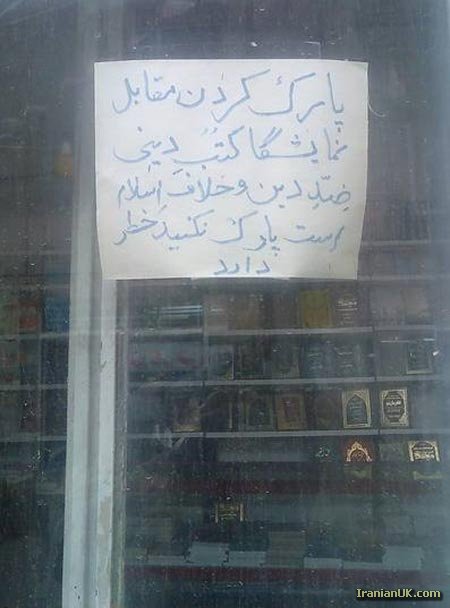 پارک کردن مقابل
نمایشگا کتب دینی
ضدِ دین و خلاف اسلام
است پارک نکنید خطر
دارد
IranianUK.com